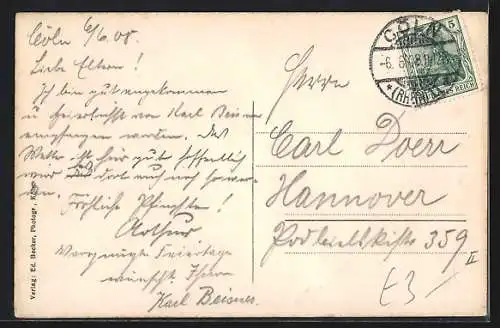 Cöln 6/6.08.
Liebe Eltern!
Ich bin gut angekommen
u. von Karl Beisner
empfangen worden. Das
Wetter ist hier gut hoffentlich
wird das dort auch noch
Fröhliche Pfingsten!
Arthur
Vergnügte Feiertage
wünscht Ihnen
Karl Beisner.
Verlag: Ed. Becker, Photogr., Köln
CÖLN
-6. 6. 08. 8
* (RHEIN)
5
REICH
Herrn
Carl Doerr
Hannover
Podbielskistr 359 II
£3-